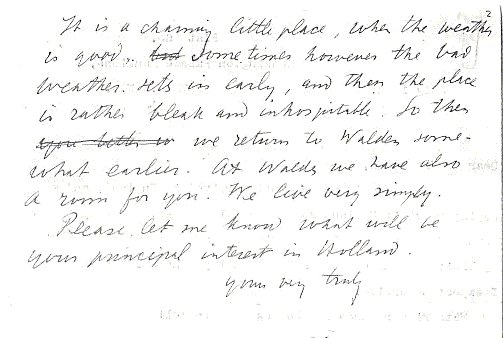 2
It is a charming little place, when the weather
is good. but sometimes however the bad
weather sets in early, and then the place
is rather bleak and inhospitable. So then
we return to Walden some-
what earlier. At Walden we have also
a room for you. We live very simply.
Please let me know what will be
your principal interest in Holland.
yours very truly